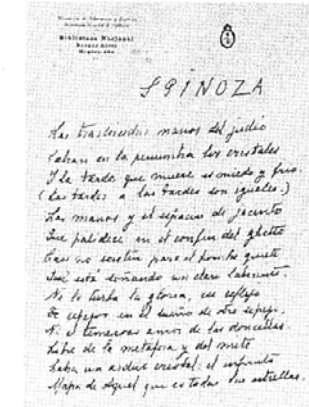 Biblioteca Nacional
Buenos Aires
SPINOZA
Las traslúcidas manos del judío
Labran en la penumbra los cristales
Y la tarde que muere es miedo y frío
(Las tardes a las tardes son iguales.)
Las manos y el espacio de jacinto
Que palidece en el confín del ghetto
Casi no existen para el hombre quieto
Que está soñando un claro laberinto.
No lo turba la gloria, ese reflejo
De espejos en el sueño de otro espejo,
Ni el temeroso amor de las doncellas.
Libre de la metáfora y del mito
Labra un arduo cristal: el infinito
Mapa de Aquel que es todas sus estrellas.